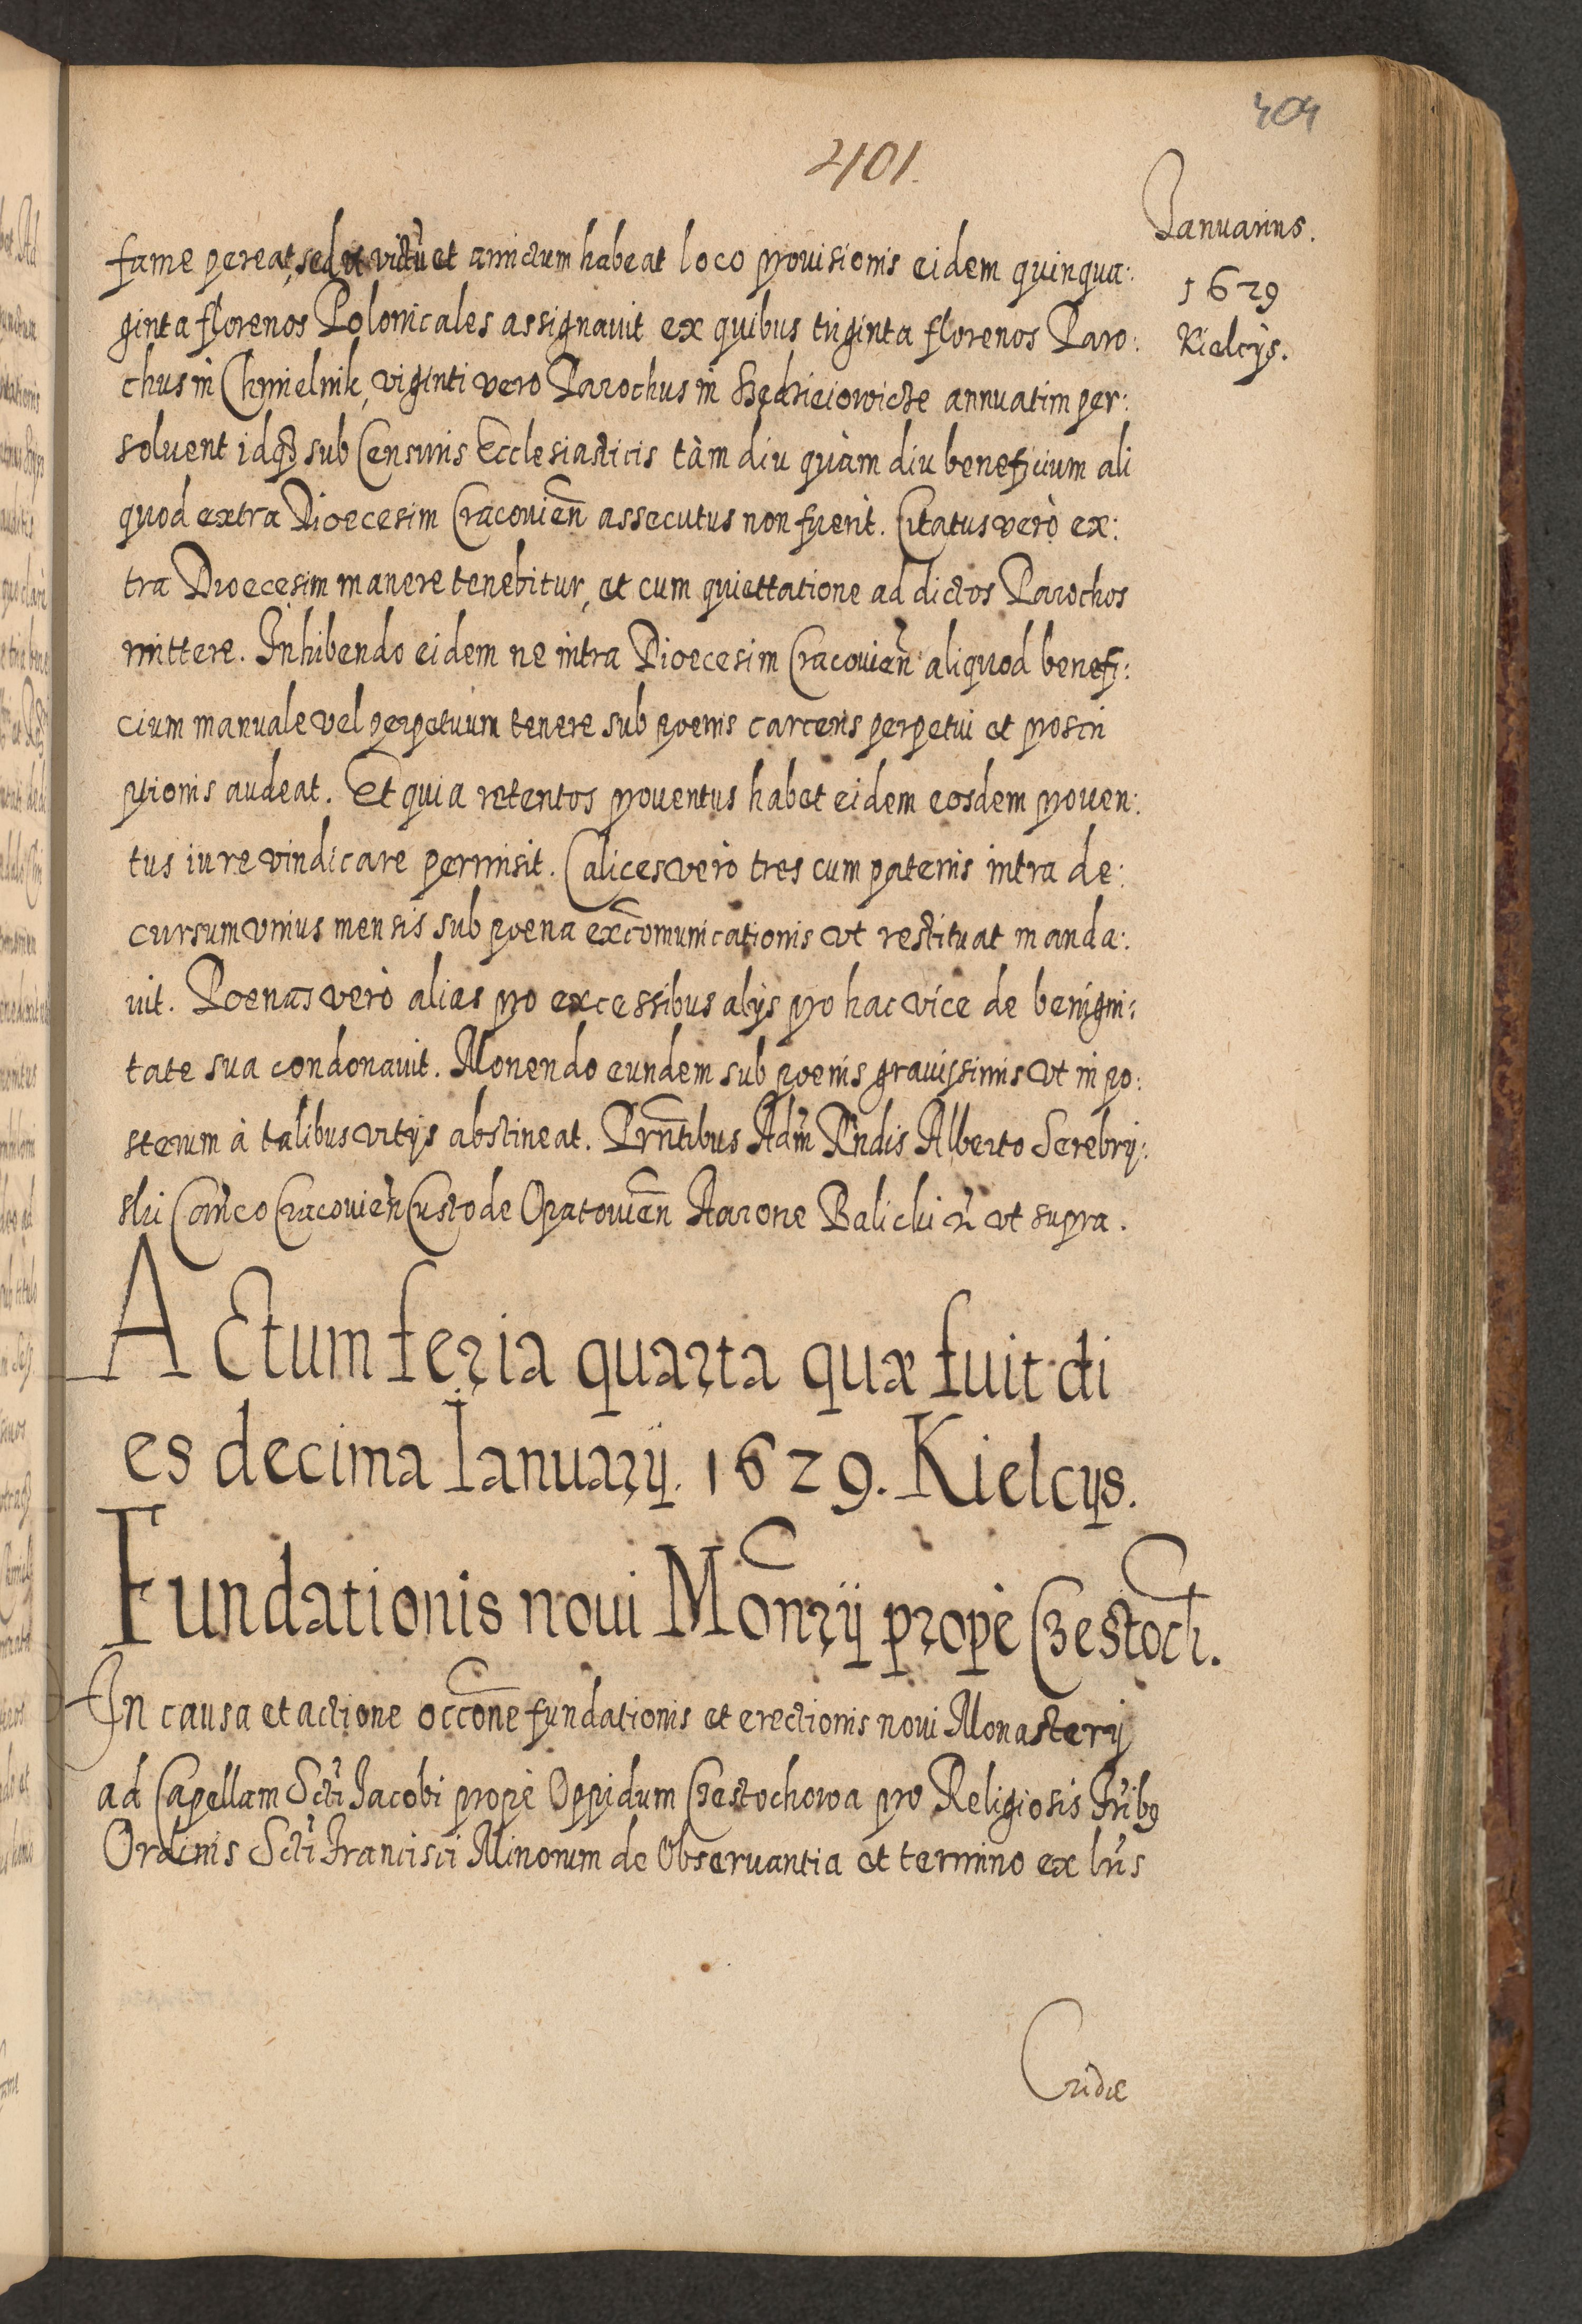 404
401.
Ianuarius.
1629
Kielcijs.
fame pereat, sed ut victũ et amictum habeat loco prouisionis eidem quinqua:
ginta florenos Polonicales assignauit ex quibus triginta florenos Paro:
chus in Chmielnik, viginti vero Parochus in annuatim per:
soluent idqꝫ sub Censuris Ecclesiasticis tàm diu quàm diu beneficium ali
quod extra Dioecesim Cracovieñ assecutus non fuerit. Citatus verò ex:
tra Dioecesim manere tenebitur, et cum quiettatione ad dictos Parochos
mittere. Inhibendo eidem ne intra Dioecesim Cracovieñ aliquod benefi:
cium manuale vel perpetuum tenere sub poenis carceris perpetui et proscri
ptionis audeat. Et quia retentos prouentus habet eidem eosdem prouen:
tus iure vindicare permisit. Calices verò tres cum patenis intra de:
cursum vnius mensis sub poena excõmunicationis vt restituat manda:
uit. Poenas verò alias pro excessibus alijs pro hac vice de benigni:
tate sua condonauit. Monendo eundem sub poenis grauissimis vt in po:
sterum à talibus vitijs abstineat. Prñtibus Adm̃ Rñdis Alberto Serebrij:
ski Cañco Cracovieñ Custode Opatovieñ Aarone Balicki ut supra.
Actum feria quarta quæ fuit di
es decima Ianuarij. 1629. Kielcijs.
Fundationis noui Moñrij propè Czestoch.
In causa et actione occõne fundationis et erectionis noui Monasterij
ad Capellam Scti Jacobi propè Oppidum Czestochowa pro Religiosis Fribꝰ
Ordinis Scti Francisci Minorum de Obseruantia et termino ex lris
Cridæ